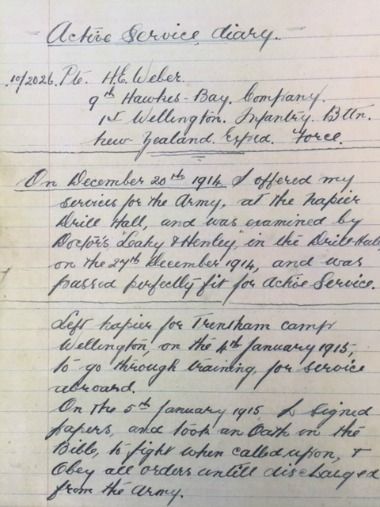 Active Service diary.
10/2026. Pte. H.E. Weber.
9th Hawkes-Bay. Company.
1st Wellington. Infantry. Bttn.
New Zealand. Exped. Force.
On December 20th 1914, I offered my
services for the Army, at the Napier
Drill Hall, and was examined by
Doctor's Leahy & Henley, in the Drill Hall
on the 27th December 1914, and was
passed perfectly fit for Active Service.
Left Napier for Trentham camp
Wellington, on the 4th January 1915,
to go through training, for service
abroard.
On the 5th January 1915 I signed
papers, and took an Oath on the
Bible, to fight when called upon, &
Obey all orders untill discharged
from the Army.